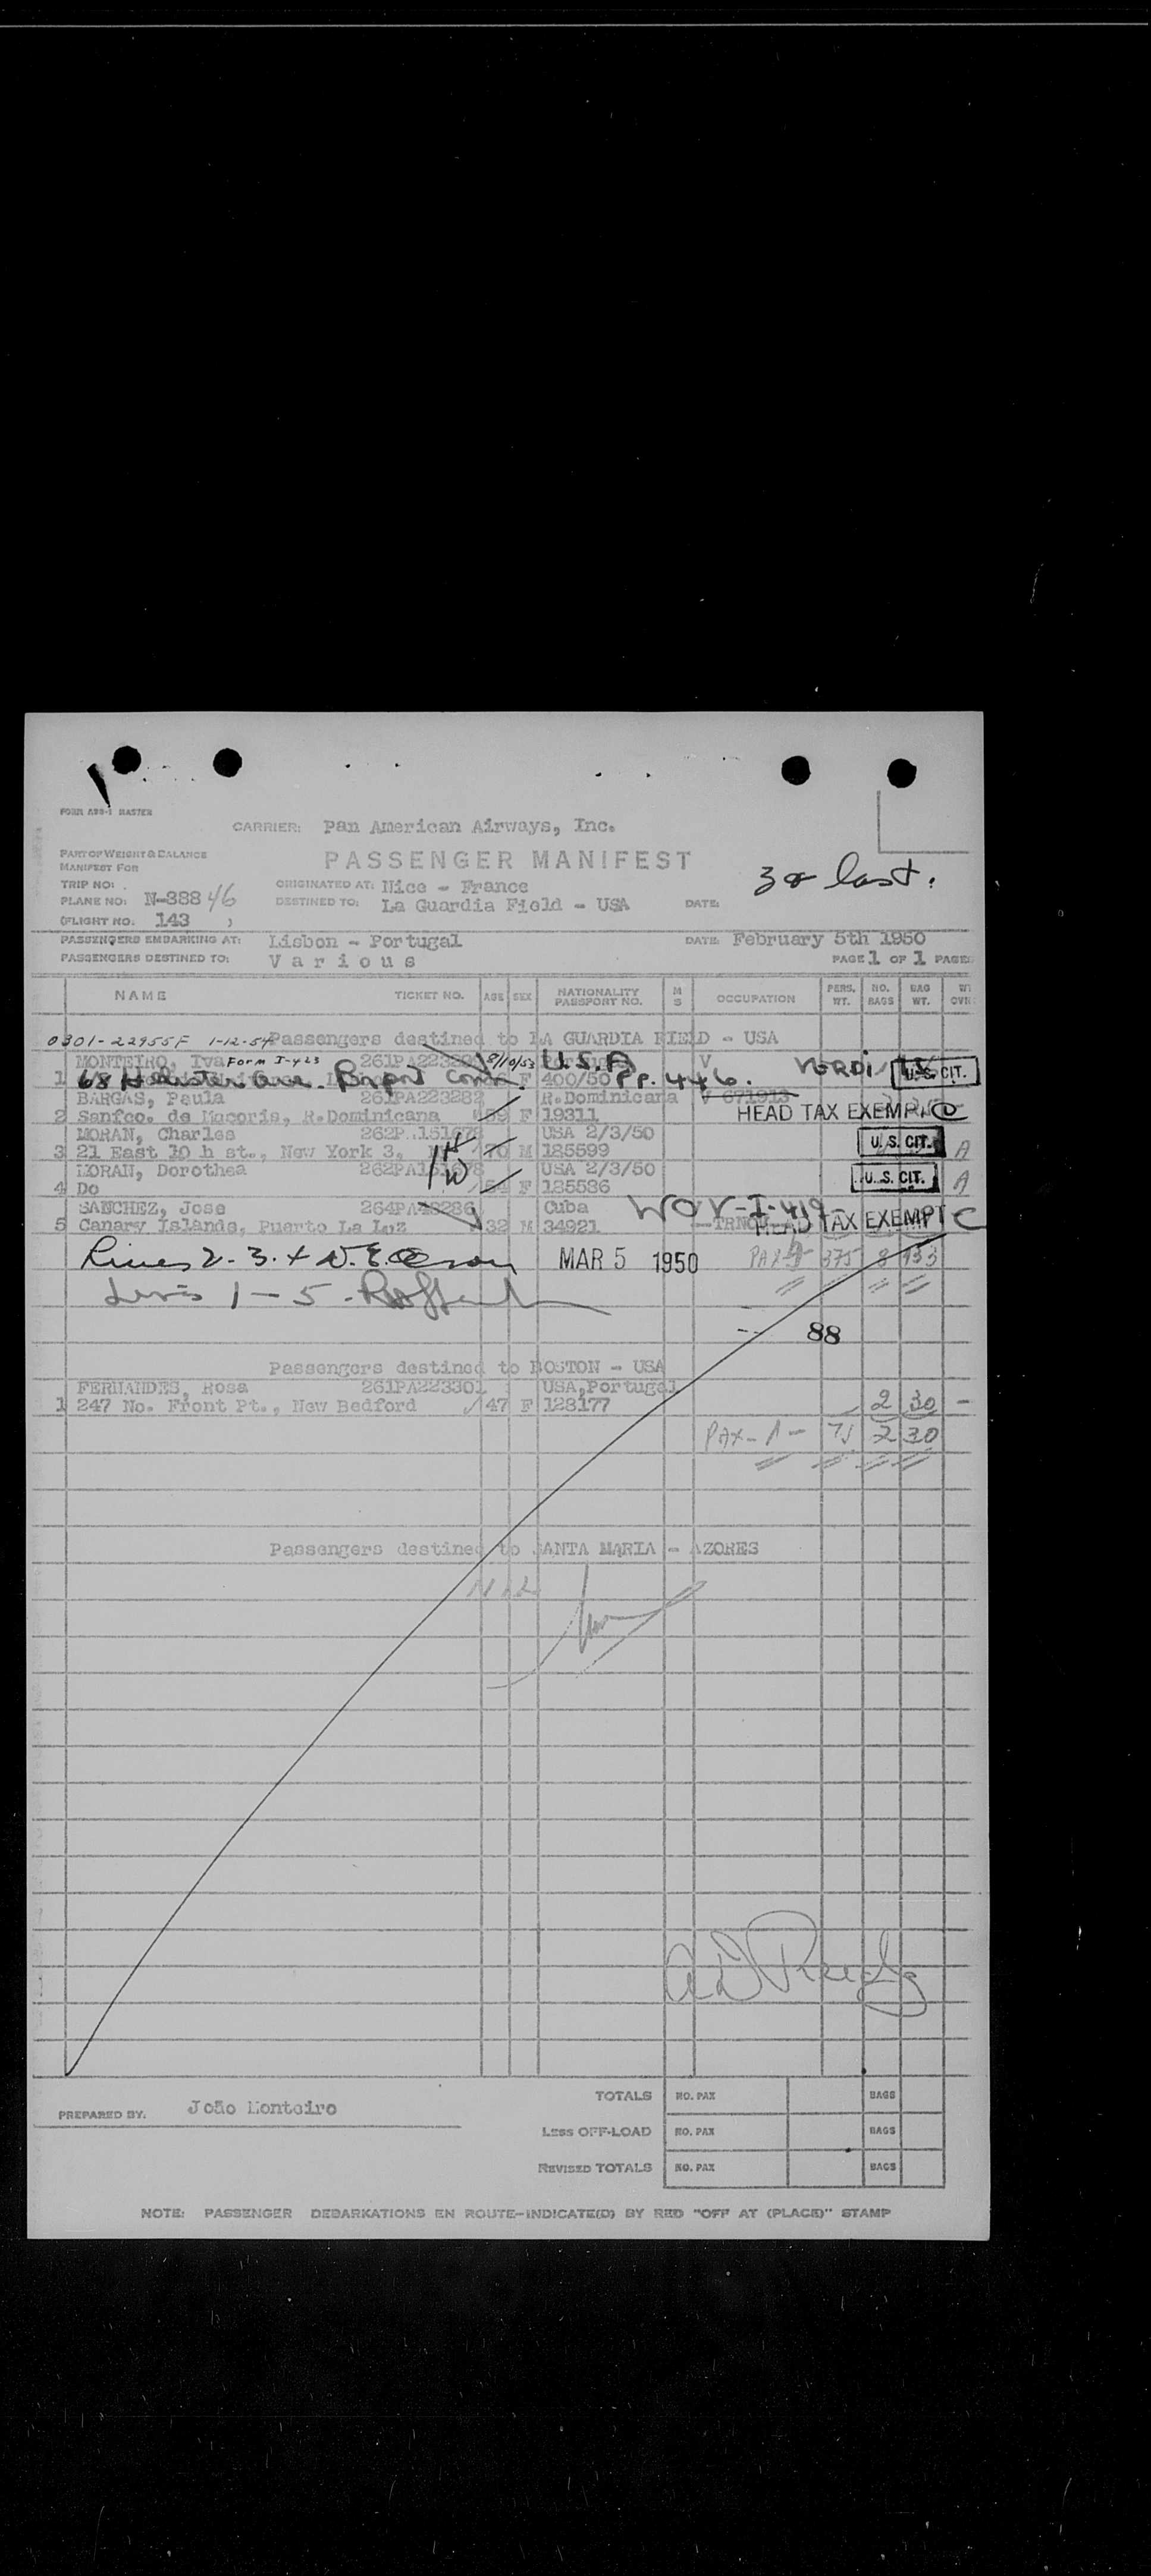 FORM ABS-1 MASTER
CARRIER: Pan American Airways, Inc.
PART OF WEIGHT & BALANCE
MANIFEST FOR
PASSENGER MANIFEST
3 & last.
TRIP NO:
ORIGINATED AT: Nice - France
PLANE NO: N-88846
DESTINED TO: La Guardia Field - USA
DATE:
(FLIGHT NO. 143 )
PASSENGERS EMBARKING AT: Lisbon - Portugal
DATE: February 5th 1950
PASSENGERS DESTINED TO: Various
PAGE 1 OF 1 PAGES
NAME TICKET NO. AGE SEX NATIONALITY PASSPORT NO. M S OCCUPATION PERS. WT. NO. BAGS BAG WT.
0301-22955F 1-12-54 Passengers destined to LA GUARDIA FIELD - USA
MONTEIRO, Iva Form I-423 8/10/53 U.S.A V
1 68 Ave. Bnpnt Conn. F 400/50 PP. 446. U.S. CIT.
BARGAS, Paula 261PA223282 R.Dominicana V 671913
2 Sanfco. de Macoris, R.Dominicana F 19311 HEAD TAX EXEMPT
MORAN, Charles USA 2/3/50
3 21 East 10 h st., New York 3, 70 M 185599 U.S. CIT. A
MORAN, Dorothea USA 2/3/50
4 Do F 185586 U.S. CIT. A
SANCHEZ, Jose Cuba WOV-I-419
5 Canary Islands, Puerto La Luz 32 M 34921 HEAD TAX EXEMPT C
Lines 2-3-4 MAR 5 1950 PAX 375 8 133
1-5
88
Passengers destined to BOSTON - USA
FERNANDES, Rosa 261PA223301 USA, Portugal
1 247 No. Front Pt., New Bedford 47 F 128177 2 30 -
PAX-1- 75 2 30
Passengers destined to SANTA MARIA - AZORES
Nil
TOTALS NO. PAX BAGS
PREPARED BY. João Monteiro
LESS OFF-LOAD NO. PAX BAGS
REVISED TOTALS NO. PAX BAGS
NOTE: PASSENGER DEBARKATIONS EN ROUTE-INDICATE(D) BY RED "OFF AT (PLACE)" STAMP